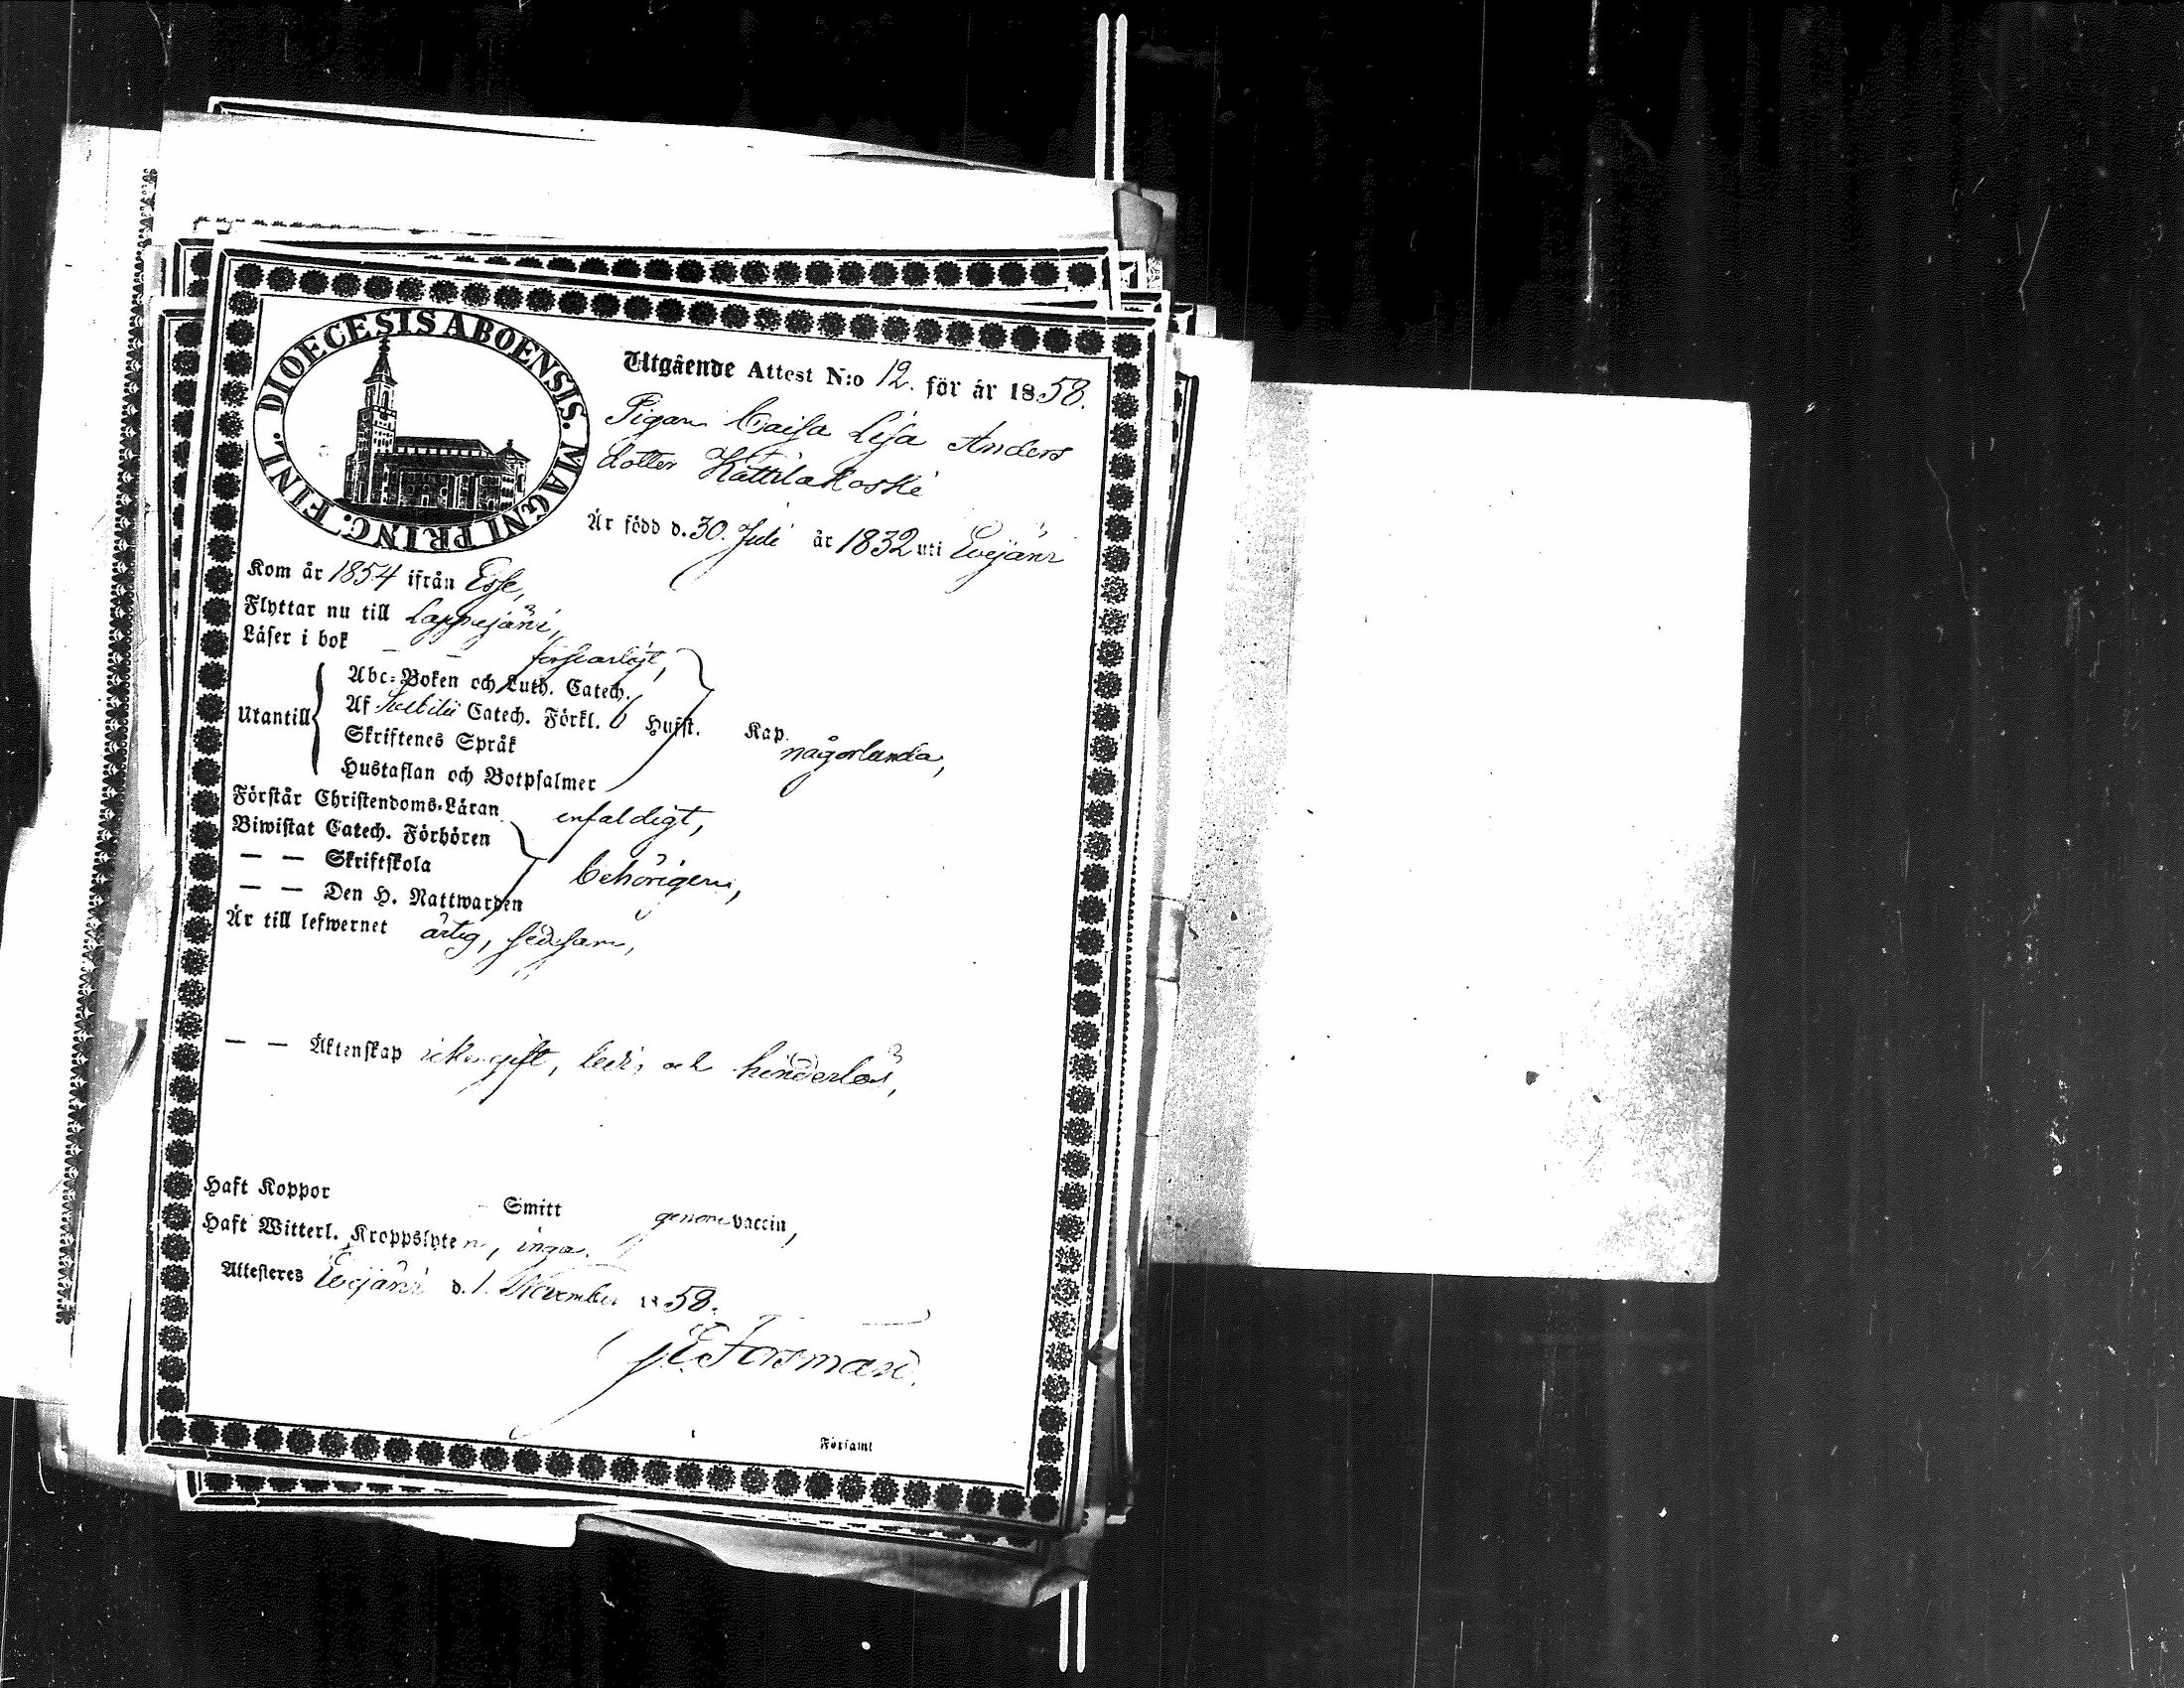 DIOECESIS ABOENSIS. MAGNI PRINC. FINL.
Utgående Attest N:o 12. för år 1858.
Pigan Caisa Lisa Anders
dotter Kattilakoski
Är född d. 30. Juli år 1832 uti Evijärvi
Kom år 1854 ifrån Esse,
Flyttar nu till Lappajärvi,
Läser i bok — — försvarligt,
Utantill
Abc-Boken och Luth. Catech.
Af Svebilii Catech. Förkl. 6 Hufst. Kap.
någorlunda,
Skriftenes Språk
Hustaflan och Botpsalmer
Förstår Christendoms-Läran enfaldigt,
Biwistat Catech. Förhören
— — Skriftskola
behörigen,
— — Den H. Nattwarden
Är till lefwernet ärlig, sedesam,
— — Äktenskap icke gift, ledig och hinderlös,
Haft Koppor — Smitt genom vaccin,
Haft Witterl. Kroppslyten, inga.
Attesteres Evijärvi d. 1. November 1858.
Forsman.
Församl